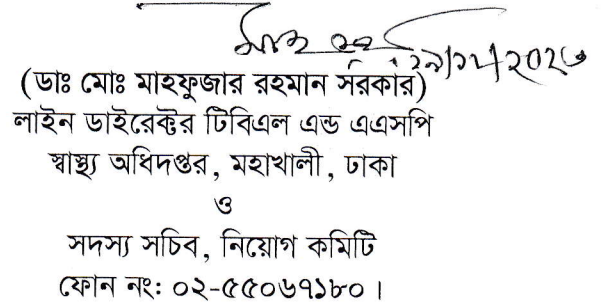 (ডাঃ মোঃ মাহফুজার রহমান সরকার)
লাইন ডাইরেক্টর টিবিএল এন্ড এএসপি
স্বাস্থ্য অধিদপ্তর, মহাখালী, ঢাকা
ও
সদস্য সচিব, নিয়োগ কমিটি
ফোন নং: ০২-৫৫০৬৭১৮০।